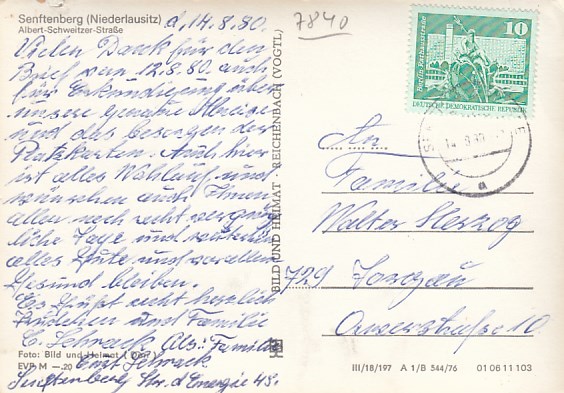 Senftenberg (Niederlausitz) d. 14.8.80.
Albert-Schweitzer-Straße
7840
Vielen Dank für den
Brief vom 12.8.80 auch
für Erkundigung über
unsere genaue
und das besorgen der
Platzkarten. Auch hier
ist alles Wohlauf und
wünschen auch Ihnen
allen noch recht vergnüg-
liche Tage und weiterhin
alles Gute und vor allem
Gesund bleiben.
Es grüßt recht herzlich
und Familie
E. Schrack Abs: Familie
Foto: Bild und Heimat
Ernst Schrack
EVP M —.20
Senftenberg Str. d. Energie 48.
BILD UND HEIMAT REICHENBACH (VOGTL)
10
Berlin, Rathausstraße
DEUTSCHE DEMOKRATISCHE REPUBLIK
a
An
Familie
Walter Herzog
729 Torgau
10
III/18/197 A 1/B 544/76 01 06 11 103